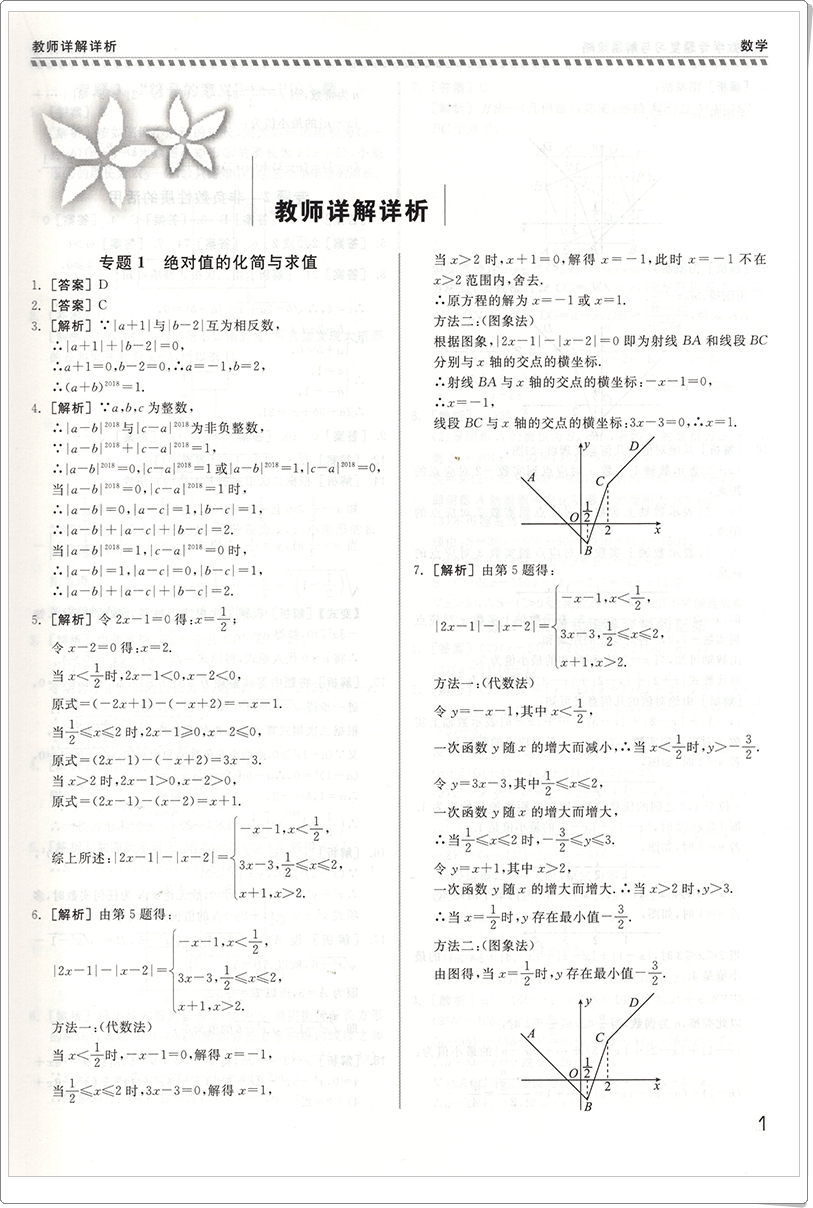 教师详解详析
数学
教师详解详析
专题1 绝对值的化简与求值
1. [答案] D
2. [答案] C
3. [解析] ∵|a+1|与|b−2|互为相反数，
∴|a+1|+|b−2|=0，
∴a+1=0,b−2=0,∴a=−1,b=2，
∴(a+b)²⁰¹⁸=1.
4. [解析] ∵a,b,c为整数，
∴|a−b|²⁰¹⁸与|c−a|²⁰¹⁸为非负整数，
∵|a−b|²⁰¹⁸+|c−a|²⁰¹⁸=1，
∴|a−b|²⁰¹⁸=0,|c−a|²⁰¹⁸=1或|a−b|²⁰¹⁸=1,|c−a|²⁰¹⁸=0，
当|a−b|²⁰¹⁸=0,|c−a|²⁰¹⁸=1时，
∴|a−b|=0,|c−a|=1,|b−c|=1，
∴|a−b|+|a−c|+|b−c|=2.
当|a−b|²⁰¹⁸=1,|c−a|²⁰¹⁸=0时，
∴|a−b|=1,|a−c|=0,|b−c|=1，
∴|a−b|+|a−c|+|b−c|=2.
5. [解析] 令2x−1=0得:x=1/2；
令x−2=0得:x=2.
当x<1/2时,2x−1<0,x−2<0，
原式=(−2x+1)−(−x+2)=−x−1.
当1/2≤x≤2时,2x−1≥0,x−2≤0，
原式=(2x−1)−(−x+2)=3x−3.
当x>2时,2x−1>0,x−2>0，
原式=(2x−1)−(x−2)=x+1.
−x−1,x<1/2，
综上所述:|2x−1|−|x−2|={3x−3,1/2≤x≤2，
x+1,x>2.
6. [解析] 由第5题得:
−x−1,x<1/2，
|2x−1|−|x−2|={3x−3,1/2≤x≤2，
x+1,x>2.
方法一:(代数法)
当x<1/2时,−x−1=0,解得x=−1，
当1/2≤x≤2时,3x−3=0,解得x=1，
当x>2时,x+1=0,解得x=−1,此时x=−1不在
x>2范围内,舍去.
∴原方程的解为x=−1或x=1.
方法二:(图象法)
根据图象,|2x−1|−|x−2|=0即为射线BA和线段BC
分别与x轴的交点的横坐标.
∴射线BA与x轴的交点的横坐标:−x−1=0，
∴x=−1，
线段BC与x轴的交点的横坐标:3x−3=0,∴x=1.
y
D
A
C
O
1/2
2
x
B
7. [解析] 由第5题得:
−x−1,x<1/2，
|2x−1|−|x−2|={3x−3,1/2≤x≤2，
x+1,x>2.
方法一:(代数法)
令y=−x−1,其中x<1/2，
一次函数y随x的增大而减小,∴当x<1/2时,y>−3/2.
令y=3x−3,其中1/2≤x≤2，
一次函数y随x的增大而增大，
∴当1/2≤x≤2时,−3/2≤y≤3.
令y=x+1,其中x>2，
一次函数y随x的增大而增大.∴当x>2时,y>3.
∴当x=1/2时,y存在最小值−3/2.
方法二:(图象法)
由图得,当x=1/2时,y存在最小值−3/2.
y
D
A
C
O
1/2
2
x
B
1